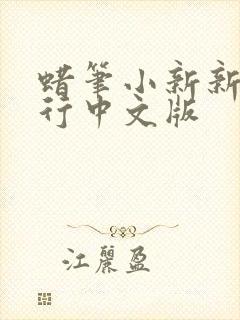 蜡筆小新新
行中文版
江麗盈